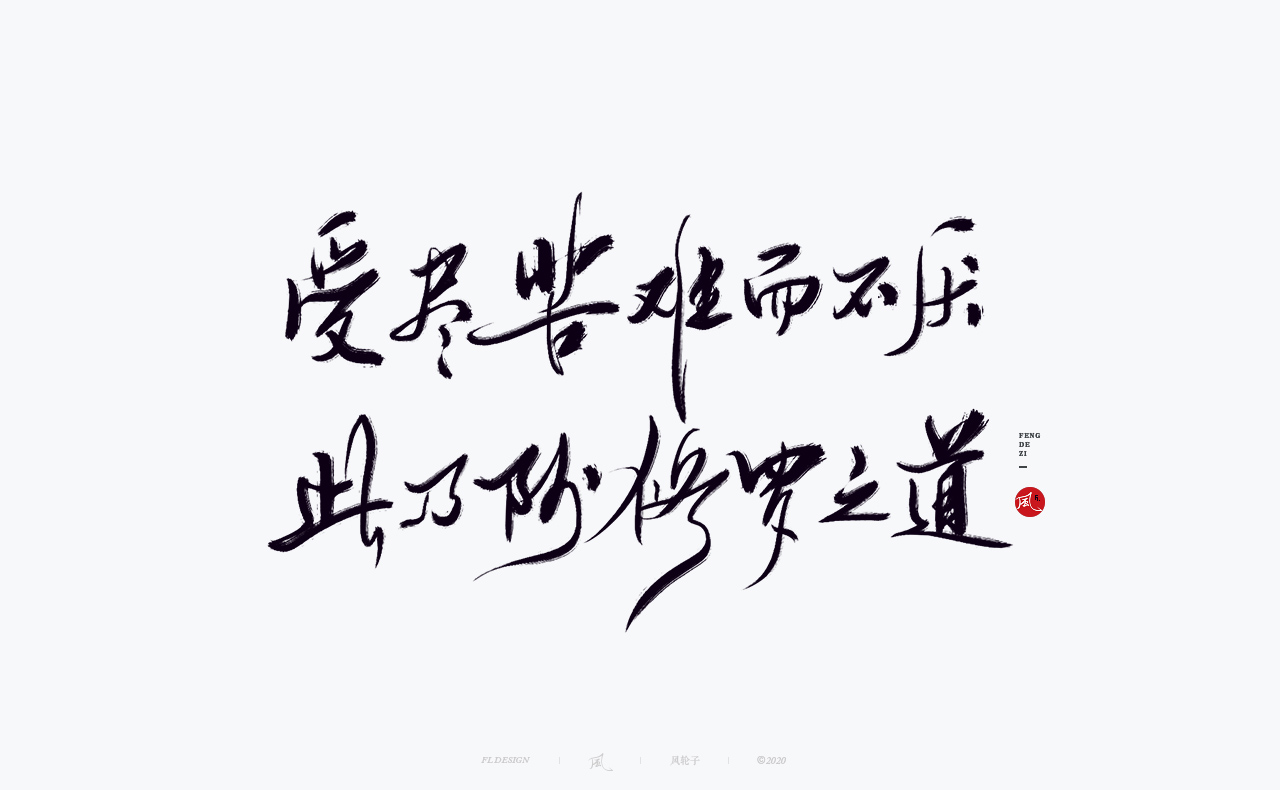 受尽苦难而不厌
此乃阿修罗之道
FENG
DE
ZI
風
FL DESIGN
風
风轮子
©2020